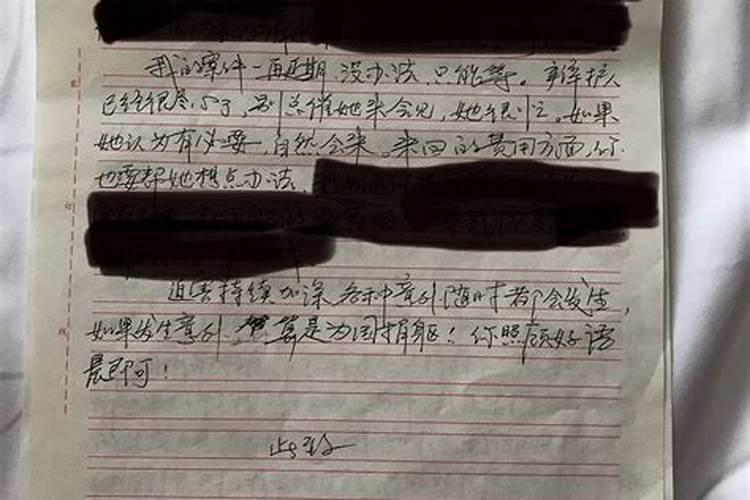 我的案件一再延期，没办法，只能等。辩护人
已经很尽心了，别总催她来会见，她很忙。如果
她认为有必要，自然会来。来回的费用方面，你
也要帮她想点办法，
迫害持续加深，各种意外随时都会发生，
如果发生意外，权算是为国捐躯！你照顾好语
晨即可！
此致